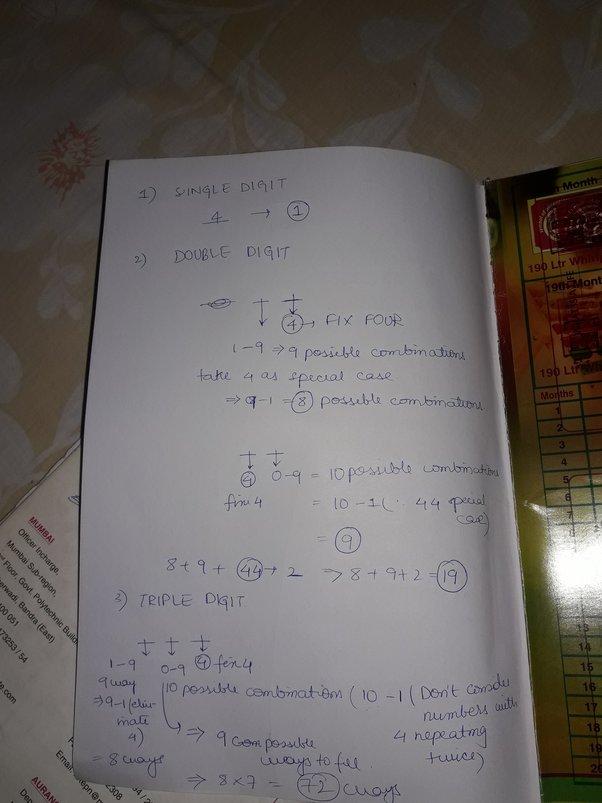 1) SINGLE DIGIT
4 → 1
2) DOUBLE DIGIT
4 → FIX FOUR
1-9 ⇒ 9 possible combinations
take 4 as special case
⇒ 9-1 = 8 possible combinations
4 0-9 = 10 possible combinations
fix 4 = 10-1 (∵ 44 special case)
= 9
8+9+ 44 → 2 ⇒ 8+9+2 = 19
3) TRIPLE DIGIT
1-9 0-9 4 fix 4
9 way
10 possible combinations (10-1 (Don't consider numbers with 4 repeating twice)
⇒ 9-1 (eliminate 4)
= 8 ways
⇒ 9 possible ways to fill
⇒ 8×7 = 72 ways
MUMBAI
Officer Incharge,
Mumbai Sub-region,
Floor, Govt. Polytechnic
Bandra (East)
00 051
73253 / 54
AURANG
Month
190 Ltr
19th Month
190 Ltr
Months
1
2
3
4
5
6
7
13
14
15
16
17
18
19
20